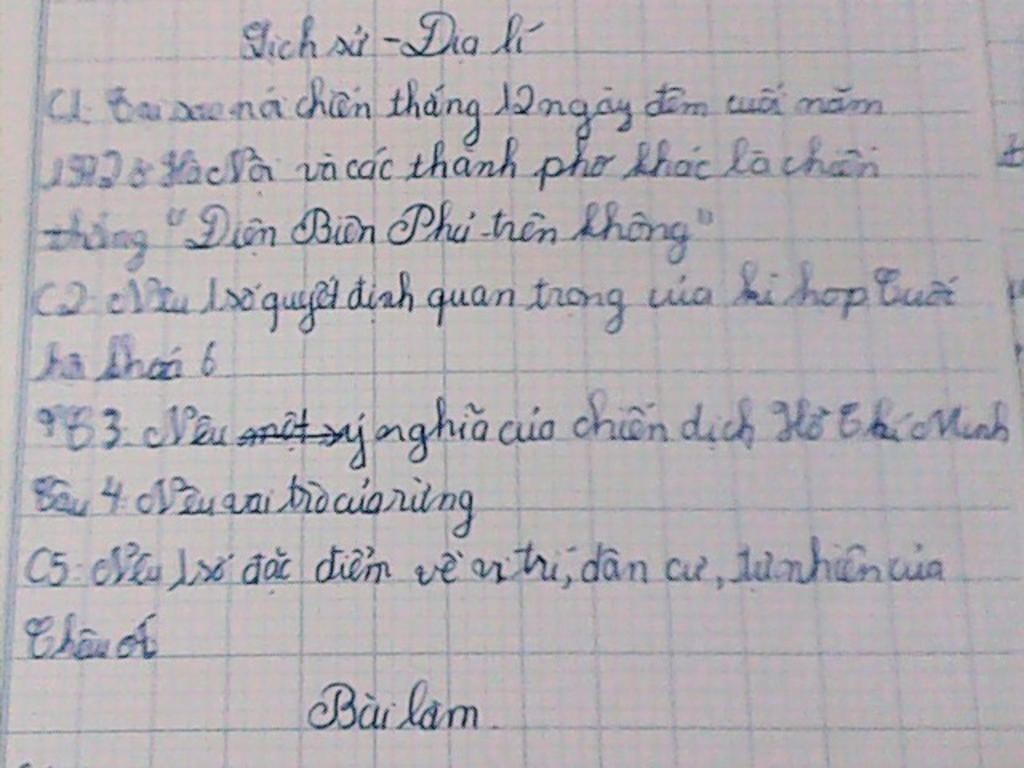 Lịch sử - Địa lí
C1: Tại sao nói chiến thắng 12 ngày đêm cuối năm
1972 ở Hà Nội và các thành phố khác là chiến
thắng "Điện Biên Phủ trên không"
C2: Nêu 1 số quyết định quan trọng của kì họp Quốc
hội khoá 6
3: Nêu một ý nghĩa của chiến dịch Hồ Chí Minh
Câu 4: Nêu vai trò của rừng
C5: Nêu 1 số đặc điểm về vị trí, dân cư, tự nhiên của
Châu Á
Bài làm